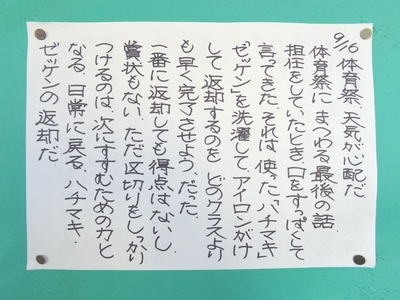 9/16 体育祭、天気が心配だ。
体育祭にまつわる最後の話。
担任をしていたとき、口をすっぱくして
言ってきた。それは、使った「ハチマキ」
「ゼッケン」を洗濯して、アイロンがけ
して返却するのを どのクラスより
も早く完了させよう、だった。
一番に返却しても得点はないし
賞状もない。ただ区切りをしっかり
つけるのは、次にすすむための力と
なる。日常に戻る。ハチマキ・
ゼッケンの返却だ。